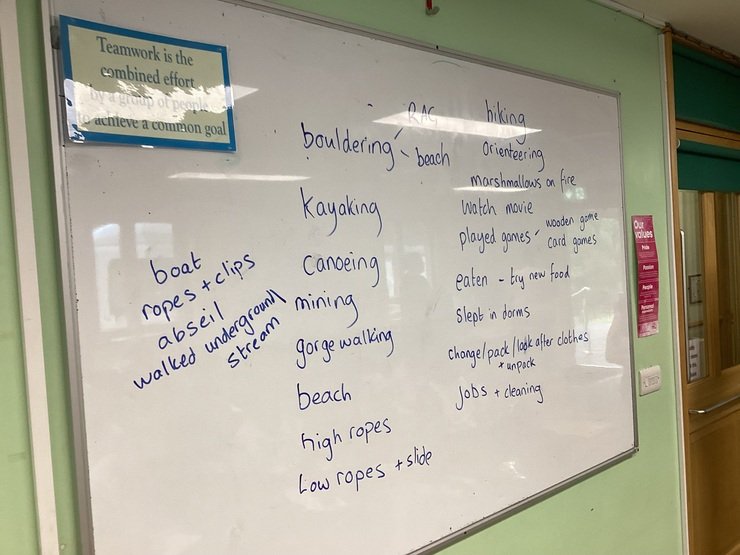 Teamwork is the
combined effort
by a group of people
to achieve a common goal
boat
ropes + clips
abseil
walked underground
stream
RAG
bouldering
beach
Kayaking
Canoeing
mining
gorge walking
beach
high ropes
Low ropes + slide
hiking
Orienteering
marshmallows on fire
Watch movie
played games - wooden game
card games
eaten - try new food
Slept in dorms
change/pack/look after clothes
+ unpack
Jobs + cleaning
Our
values
Pride
Passion
People
Personal